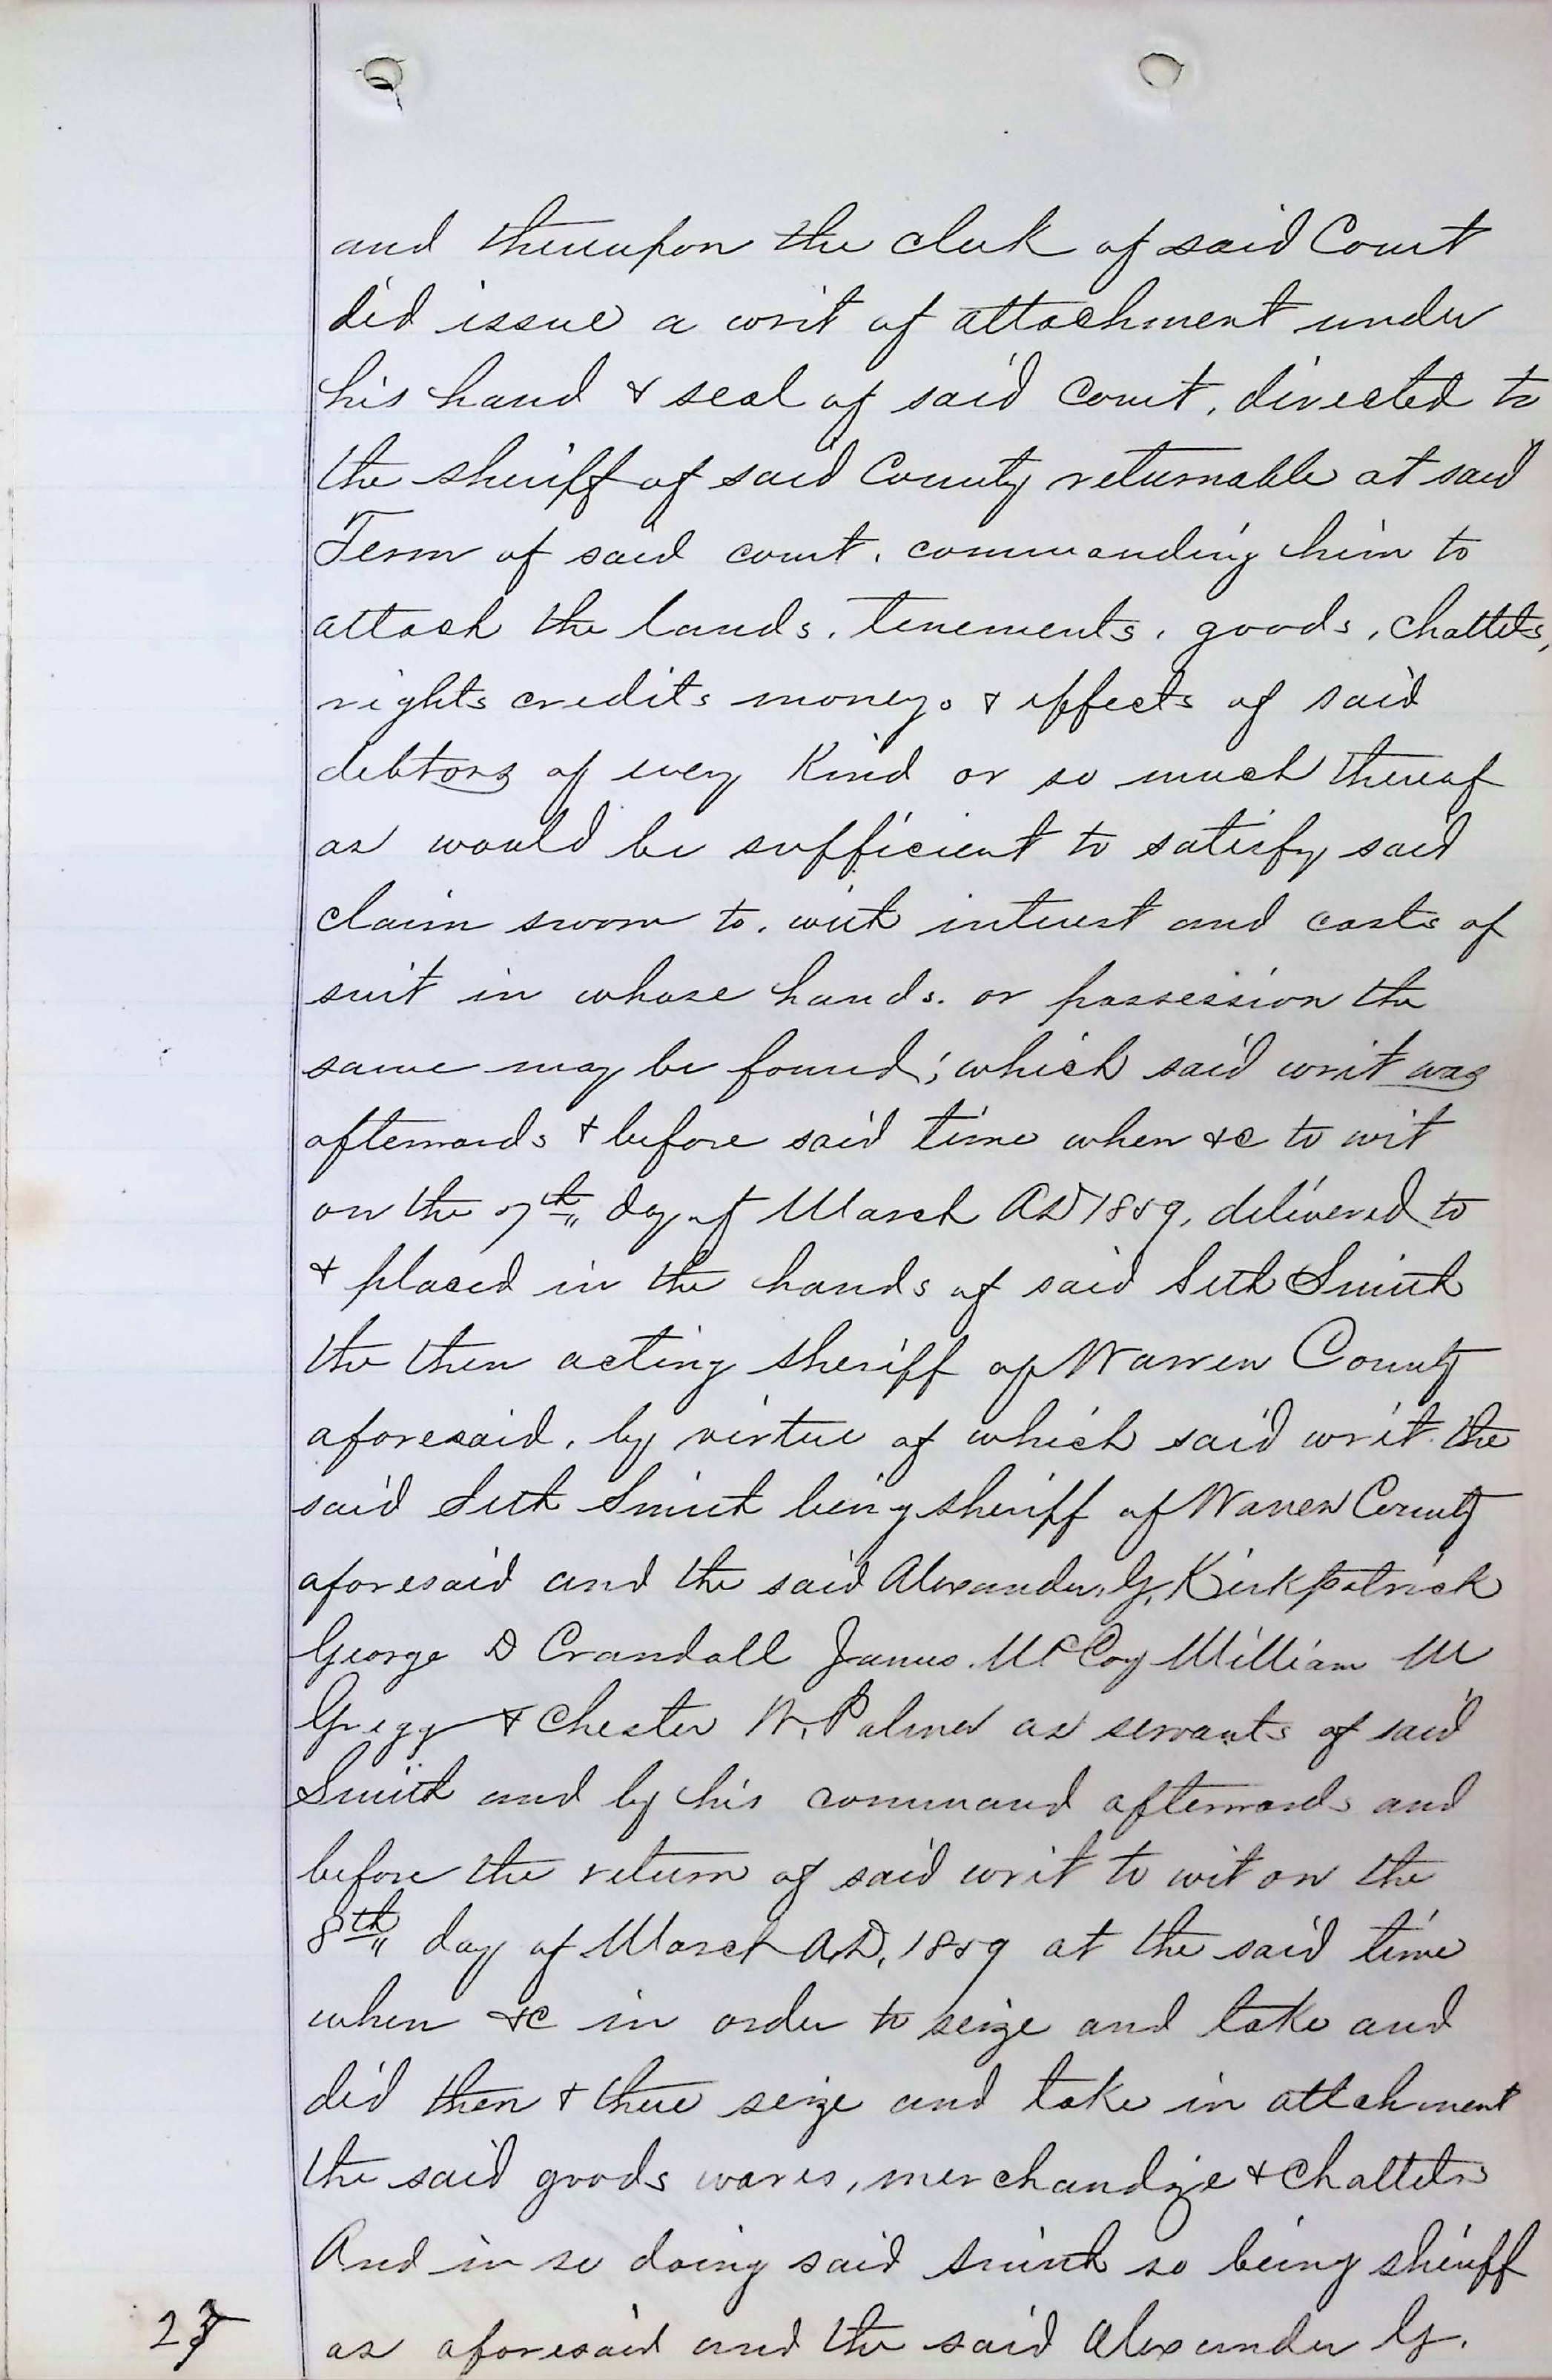 and thereupon the clerk of said Court
did issue a writ of attachment under
his hand & seal of said Court, directed to
the sheriff of said County returnable at said
Term of said court, commanding him to
attach the lands, tenements, goods, chattels,
rights credits moneys & effects of said
debtors of every Kind or so much thereof
as would be sufficient to satisfy said
claim sworn to, with interest and costs of
suit in whose hands or possession the
same may be found; which said writ was
afterwards & before said time when &c to wit
on the 7th day of March AD 1859, delivered to
& placed in the hands of said Seth Smith
the then acting sheriff of Warren County
aforesaid, by virtue of which said writ the
said Seth Smith being sheriff of Warren County
aforesaid and the said Alexander, G, Kirkpatrick
George D Crandall James McCoy William M
Gregg & Chester W. Palmer as servants of said
Smith and by his command afterwards and
before the return of said writ to wit on the
8th day of March A,D, 1859 at the said time
when &c in order to seize and take and
did then & there seize and take in attachment
the said goods wares, merchandize & Chattels
And in so doing said Smith so being sheriff
as aforesaid and the said Alexander G.